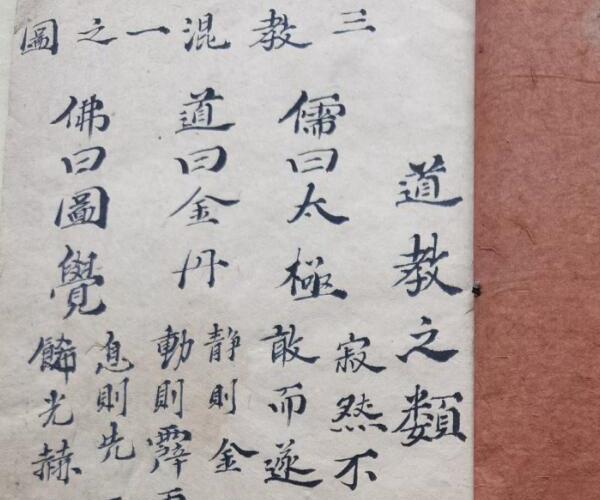 三教混一之圖
道教之類
儒曰太極
寂然不
敢而遂
道曰金丹
静則金
動則霹
佛曰圖覺
息則先
餙光赫